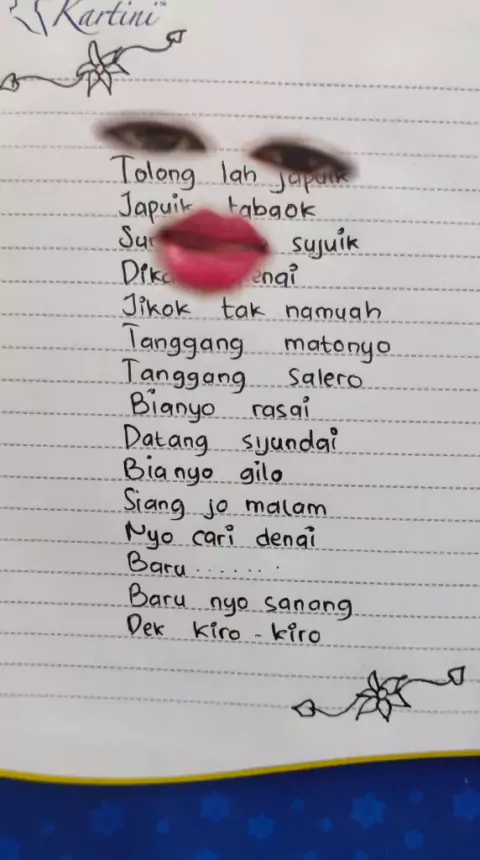 Kartini
Tolong lah japuik
Japuik tabaok
sujuik
Jikok tak namuah
Tanggang matonyo
Tanggang salero
Bianyo rasai
Datang sijundai
Bianyo gilo
Siang jo malam
Nyo cari denai
Baru........
Baru nyo sanang
Dek kiro-kiro